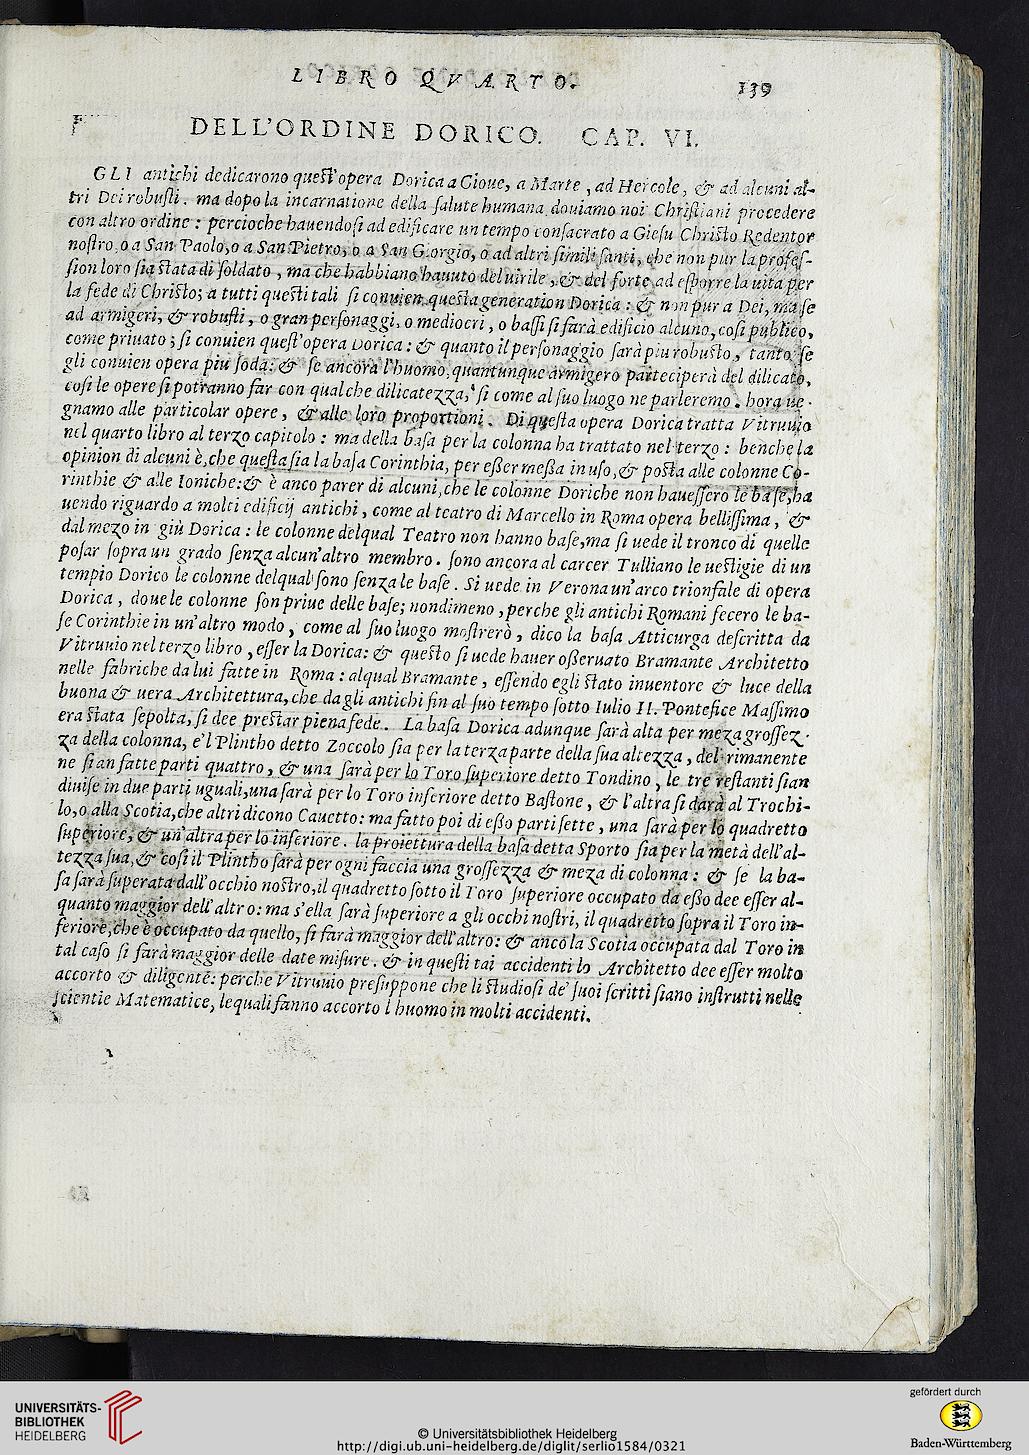 LIBRO QVARTO.
139
DELL'ORDINE DORICO. CAP. VI.
GLI antichi dedicarono quest'opera Dorica a Gioue, a Marte, ad Hercole, & ad alcuni al-
tri Dei robusti. ma dopo la incarnatione della salute humana douiamo noi Christiani procedere
con altro ordine: percioche hauendosi ad edificare un tempo consacrato a Giesu Christo Redentor
nostro, o a San Paolo, o a San Pietro, o a San Giorgio, o ad altri simili santi, che non pur la profes-
sion loro sia stata di soldato, ma che habbiano hauuto del uirile, & del forte ad esporre la uita per
la fede di Christo; a tutti questi tali si conuien questa generation Dorica: & non pur a Dei, ma se
ad armigeri, & robusti, o gran personaggi, o mediocri, o bassi si farà edificio alcuno, cosi publico,
come priuato; si conuien quest'opera Dorica: & quanto il personaggio sarà piu robusto, tanto se
gli conuien opera piu soda: & se ancora l'huomo, quantunque armigero parteciperà del dilicato,
cosi le opere si potranno far con qualche dilicatezza, si come al suo luogo ne parleremo. hora ue-
gnamo alle particolar opere, & alle loro proportioni. Di questa opera Dorica tratta Vitruuio
nel quarto libro al terzo capitolo: ma della basa per la colonna ha trattato nel terzo: benche la
opinion di alcuni è, che questa sia la basa Corinthia, per esser messa in uso, & posta alle colonne Co-
rinthie & alle Ioniche: & è anco parer di alcuni, che le colonne Doriche non hauessero le base, ha
uendo riguardo a molti edificij antichi, come al teatro di Marcello in Roma opera bellissima, &
dal mezo in giù Dorica: le colonne delqual Teatro non hanno base, ma si uede il tronco di quelle
posar sopra un grado senza alcun'altro membro. sono ancora al carcer Tulliano le uestigie di un
tempio Dorico le colonne delqual sono senza le base. Si uede in Verona un'arco trionfale di opera
Dorica, doue le colonne son priue delle base; nondimeno, perche gli antichi Romani fecero le ba-
se Corinthie in un'altro modo, come al suo luogo mostrerò, dico la basa Atticurga descritta da
Vitruuio nel terzo libro, esser la Dorica: & questo si uede hauer osseruato Bramante Architetto
nelle fabriche da lui fatte in Roma: alqual Bramante, essendo egli stato inuentore & luce della
buona & uera Architettura, che dagli antichi fin al suo tempo sotto Iulio II. Pontefice Massimo
era stata sepolta, si dee prestar piena fede. La basa Dorica adunque sarà alta per meza grossez-
za della colonna, e'l Plintho detto Zoccolo sia per la terza parte della sua altezza, del rimanente
ne sian fatte parti quattro, & una sarà per lo Toro superiore detto Tondino, le tre restanti sian
diuise in due parti uguali, una sarà per lo Toro inferiore detto Bastone, & l'altra si darà al Trochi-
lo, o alla Scotia, che altri dicono Cauetto: ma fatto poi di esso parti sette, una sarà per lo quadretto
superiore, & un'altra per lo inferiore. la proiettura della basa detta Sporto sia per la metà dell'al-
tezza sua, & cosi il Plintho sarà per ogni faccia una grossezza & meza di colonna: & se la ba-
sa sarà superata dall'occhio nostro, il quadretto sotto il Toro superiore occupato da esso dee esser al-
quanto maggior dell'altro: ma s'ella sarà superiore a gli occhi nostri, il quadretto sopra il Toro in-
feriore, che è occupato da quello, si farà maggior dell'altro: & anco la Scotia occupata dal Toro in
tal caso si farà maggior delle date misure. & in questi tai accidenti lo Architetto dee esser molto
accorto & diligente: perche Vitruuio presuppone che li studiosi de' suoi scritti siano instrutti nelle
scientie Matematice, lequali fanno accorto l'huomo in molti accidenti.
UNIVERSITÄTS-
BIBLIOTHEK
HEIDELBERG
© Universitätsbibliothek Heidelberg
http://digi.ub.uni-heidelberg.de/diglit/serlio1584/0321
gefördert durch
Baden-Württemberg